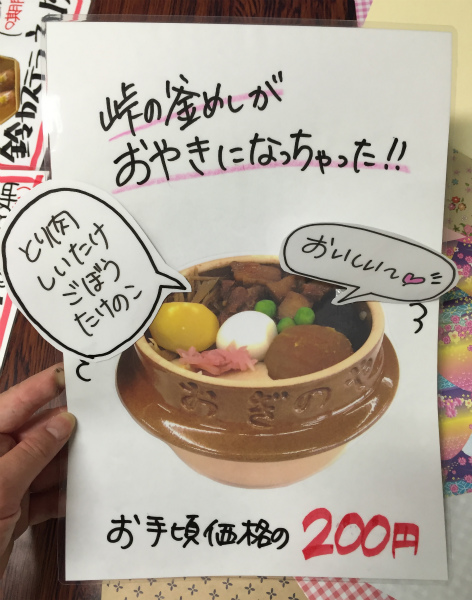 峠の釜めしが
おやきになっちゃった!!
とり肉
しいたけ
ごぼう
たけのこ
おいしい〜
おぎのや
お手頃価格の 200円
鈴カステラ